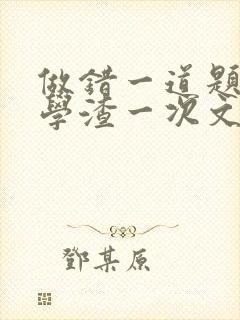 做錯一道題
學渣一次文
鄧某原